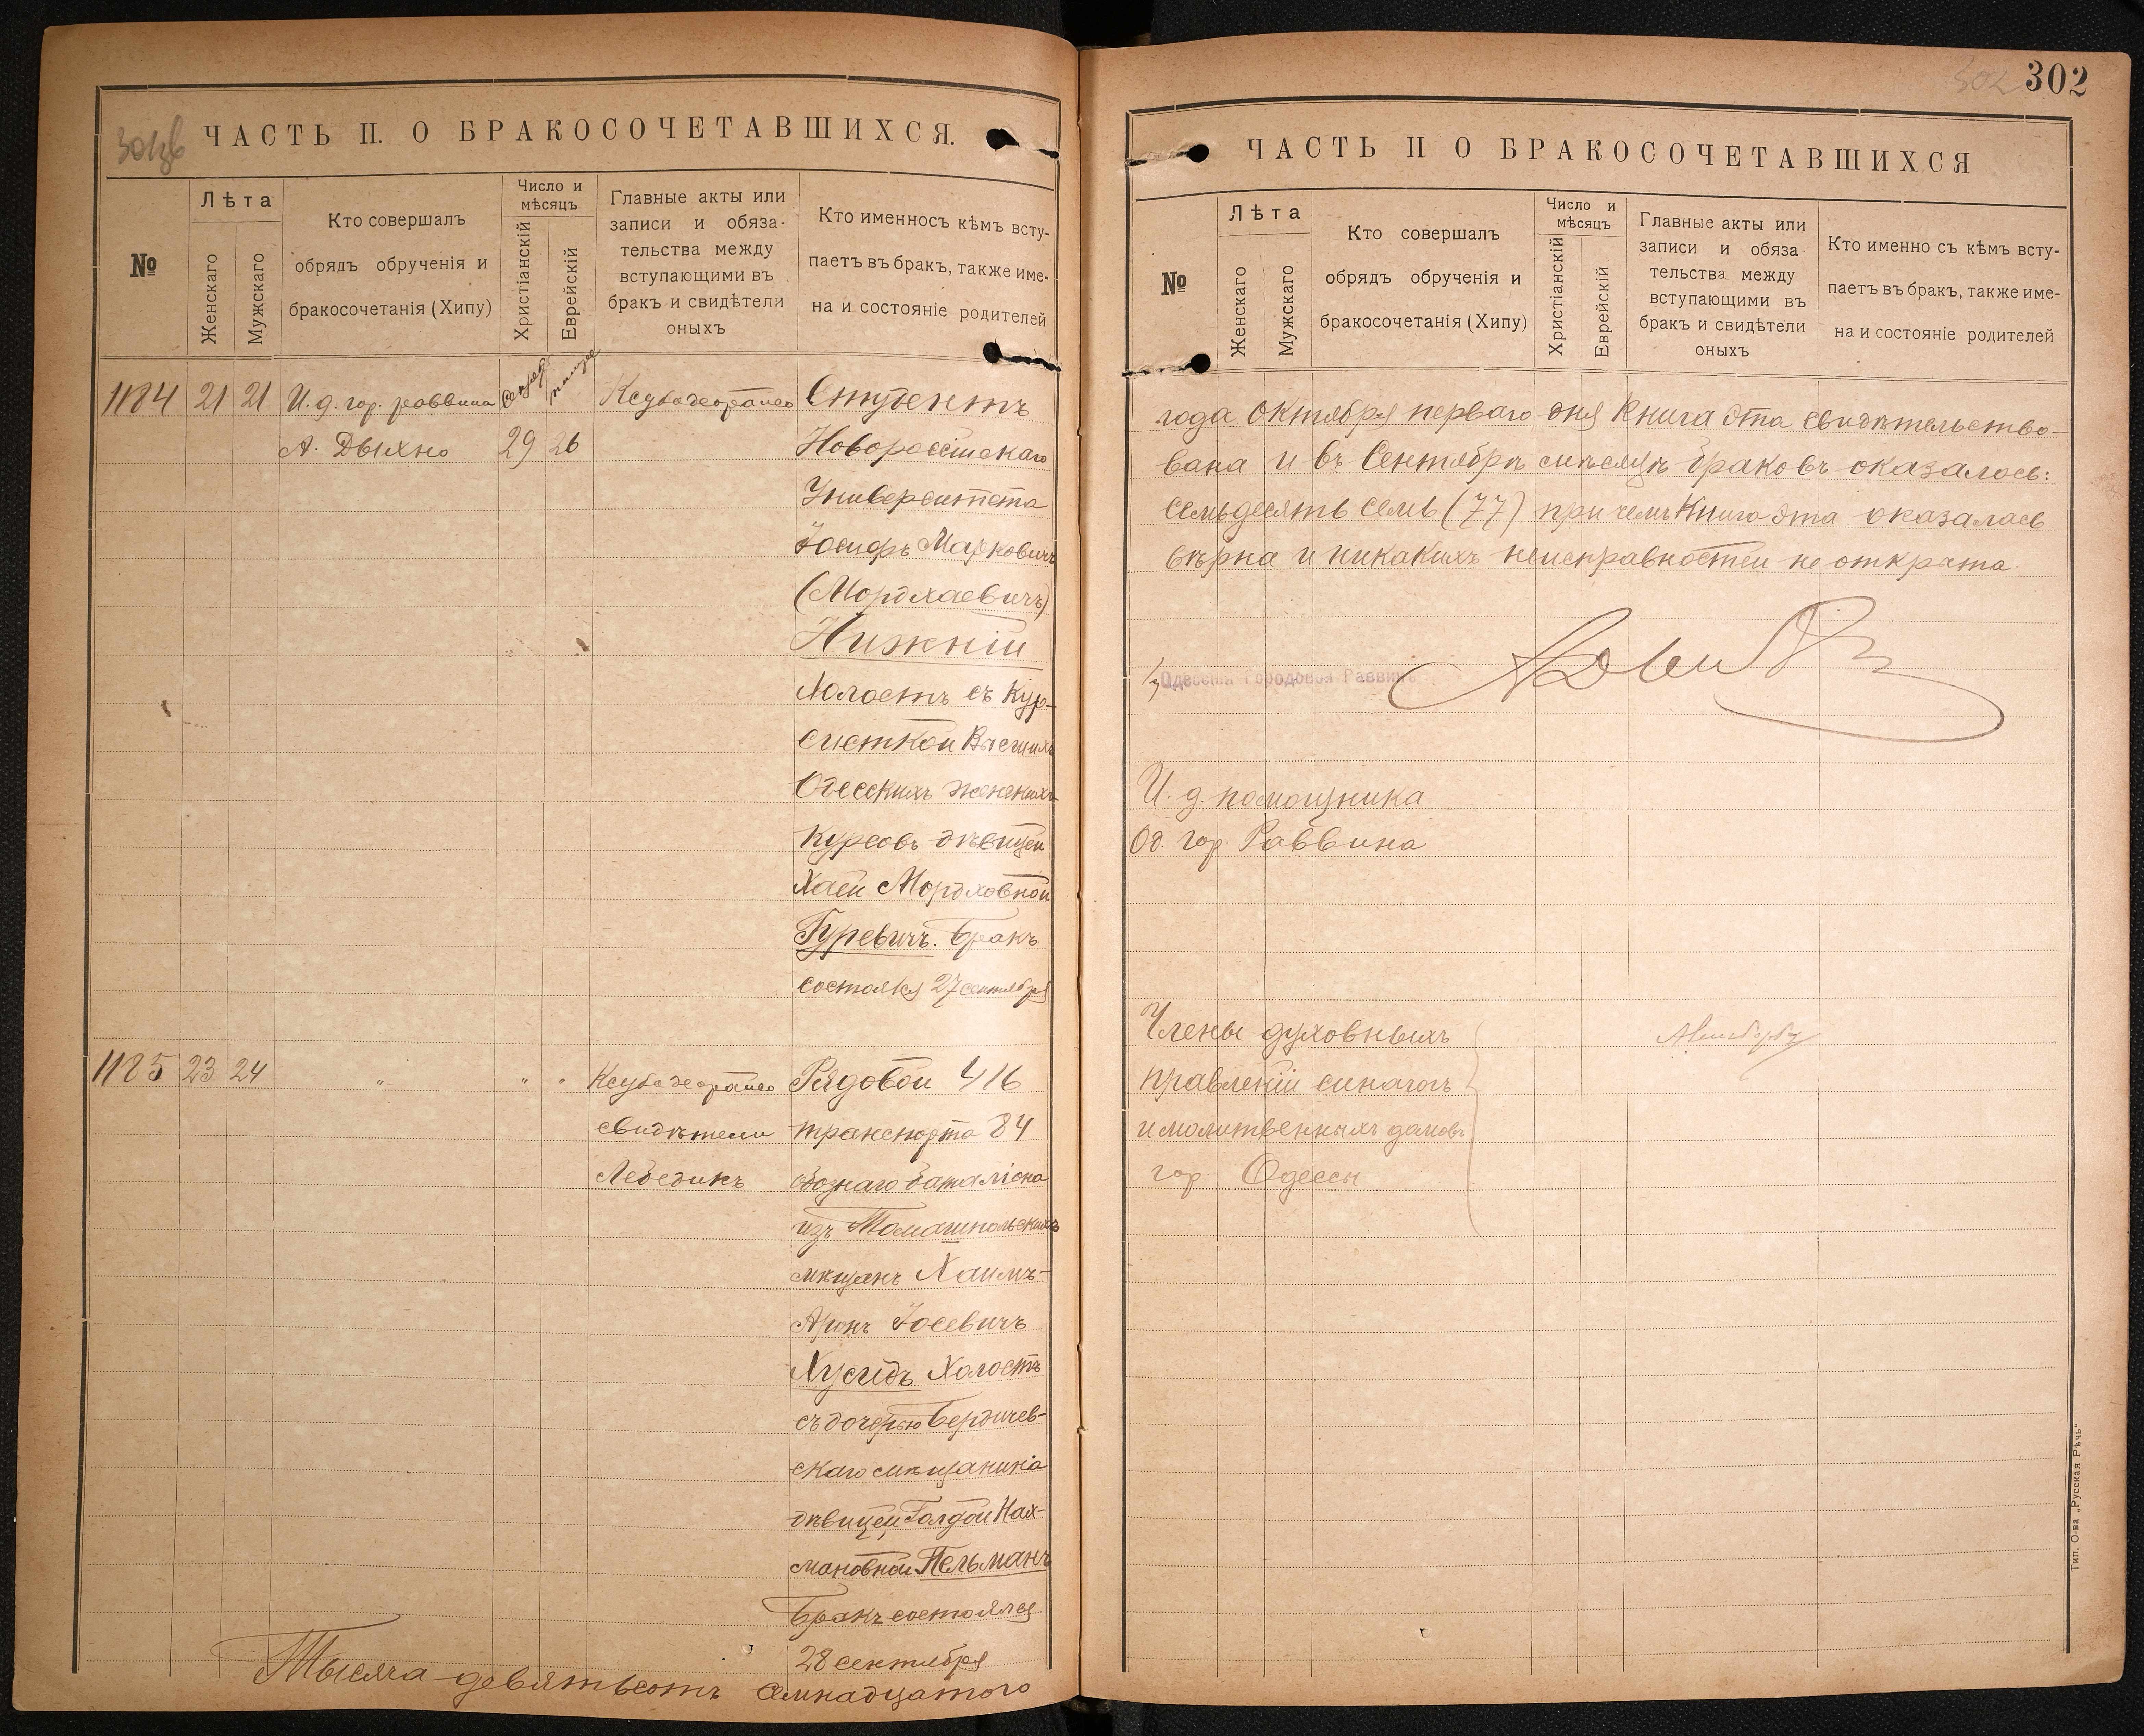 301об
ЧАСТЬ II. О БРАКОСОЧЕТАВШИХСЯ.
№
Лѣта
Женскаго
Мужскаго
Кто совершалъ
обрядъ обрученія и
бракосочетанія (Хипу)
Число и
мѣсяцъ
Христіанскій
Еврейскій
Главные акты или
записи и обяза-
тельства между
вступающими въ
бракъ и свидѣтели
оныхъ
Кто именносъ кѣмъ всту-
паетъ въ бракъ, также име-
на и состояніе родителей
1184 21 21 И. д. гор. раввина Студентъ
А. Дыхно 29 26 Новороссійскаго
Университета
Іосифъ Марковичъ
(Мордхаевичъ)
Нижній
Холостъ съ Кур-
систкой Высшихъ
Одесскихъ женскихъ
Курсовъ дѣвицей
Хаей Мордховной
Гуревичъ. Бракъ
состоялся 27 сентября
1185 23 24 " " " Рядовой 416
свидѣтели транспорта 84
Лебединъ обознаго баталіона
изъ Томашпольскихъ
мѣщанъ Хаимъ-
Аронъ Іосевичъ
Хусидъ Холостъ
съ дочерью Бердичев-
скаго мѣщанина
дѣвицей Голдой Нах-
мановной Пельманъ
Бракъ состоялся
28 сентября
Тысяча девятьсотъ семнадцатого
302
302
ЧАСТЬ II О БРАКОСОЧЕТАВШИХСЯ
№
Лѣта
Женскаго
Мужскаго
Кто совершалъ
обрядъ обрученія и
бракосочетанія (Хипу)
Число и
мѣсяцъ
Христіанскій
Еврейскій
Главные акты или
записи и обяза-
тельства между
вступающими въ
бракъ и свидѣтели
оныхъ
Кто именно съ кѣмъ всту-
паетъ въ бракъ, также име-
на и состояніе родителей
года Октября перваго дня Книга эта свидѣтельство-
вана и въ Сентябрѣ мѣсяцѣ браковъ оказалось:
семьдесять семь (77) при чемъ Книга эта оказалась
вѣрна и никакихъ неисправностей не открыта.
Одесскій Городовой Раввинъ
И. д. помощника
Од. гор. Раввина
Члены духовныхъ
правленій синагогъ
и молитвенныхъ домовъ
гор. Одессы
Тип. О-ва „Русская Рѣчь"